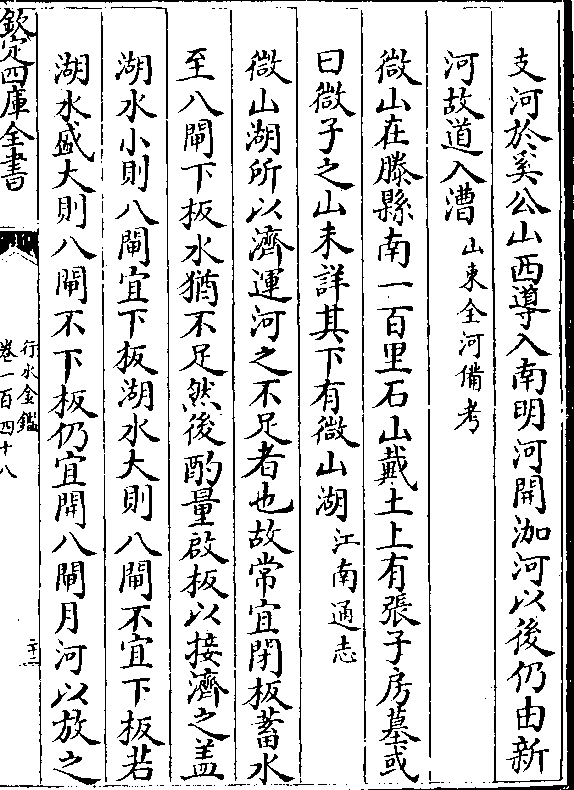 支河於奚公山西導入南明河開泇河以後仍由新
河故道入漕山東全河備考
微山在滕縣南一百里石山戴土上有張子房墓或
曰微子之山未詳其下有微山湖江南通志
微山湖所以濟運河之不足者也故常宜閉板蓄水
至八閘下板水猶不足然後酌量啟板以接濟之盖
湖水小則八閘宜下板湖水大則八閘不宜下板若
湖水盛大則八閘不下板仍宜開八閘月河以放之
欽定四庫全書
行水金鑑
卷一百四十八
二十二